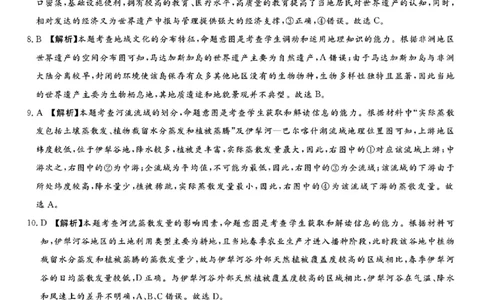 口密集,基础设施便利,拥有较高的教育、医疗水平,高质量的教育提高了当地居民对世界遗产的认知,同时,
相对发达的经济又为世界遗产申报与管理提供强大的经济支撑,③正确,④错误。故选 C。
8. B 【解析】本题考查地域文化的分布特征,命题意图是考查学生调动和运用地理知识的能力。根据非洲地区
的世界遗产空间分布图可知,马达加斯加岛的世界遗产主要为自然遗产,A 错误;由于马达加斯加岛与非洲
大陆分离较早,封闭的环境使该岛保存有众多其他地区没有的生物物种,生物多样性独特且显著,因此当地
的世界遗产主要为生物栖息地,其地质遗迹和地貌景观并不典型。故选 B。
9. A 【解析】本题考查河流流域的划分,命题意图是考查学生获取和解读信息的能力。根据材料中“实际蒸散
发包括土壤蒸散发、植物截留水分蒸发和植被蒸腾”及伊犁河—巴尔喀什湖流域地理位置图可知,上游地区
纬度较低,位于伊犁谷地,降水较多,植被更丰富,实际蒸散发量最大,因此,右图中的①对应该流域上游;中
游次之,右图中的②为中游;全流域为平均值,不可能为最低,因此,右图中的③为全流域;该流域的下游由于
所处纬度较高,降水量少,植被稀疏,实际蒸散发量最小,因此,右图中的④为该流域下游的蒸散发量。故
选 A。
10. D 【解析】本题考查河流蒸散发量的影响因素,命题意图是考查学生获取和解读信息的能力。根据材料可
知,伊犁河谷地区的土地利用类型主要为耕地,且当地春季农业生产才进入播种阶段,此时段该谷地中植物
截留水分蒸发和植被蒸腾的蒸散发量少,故与伊犁河谷外部天然植被覆盖度较高的区域相比,春季伊犁河
谷的日均蒸散发量较低,D 正确。与伊犁河谷外部天然植被覆盖度较高的区域相比,伊犁河谷在气温、降水
和风速上的差异不明确,A、B、C 错误。故选 D。